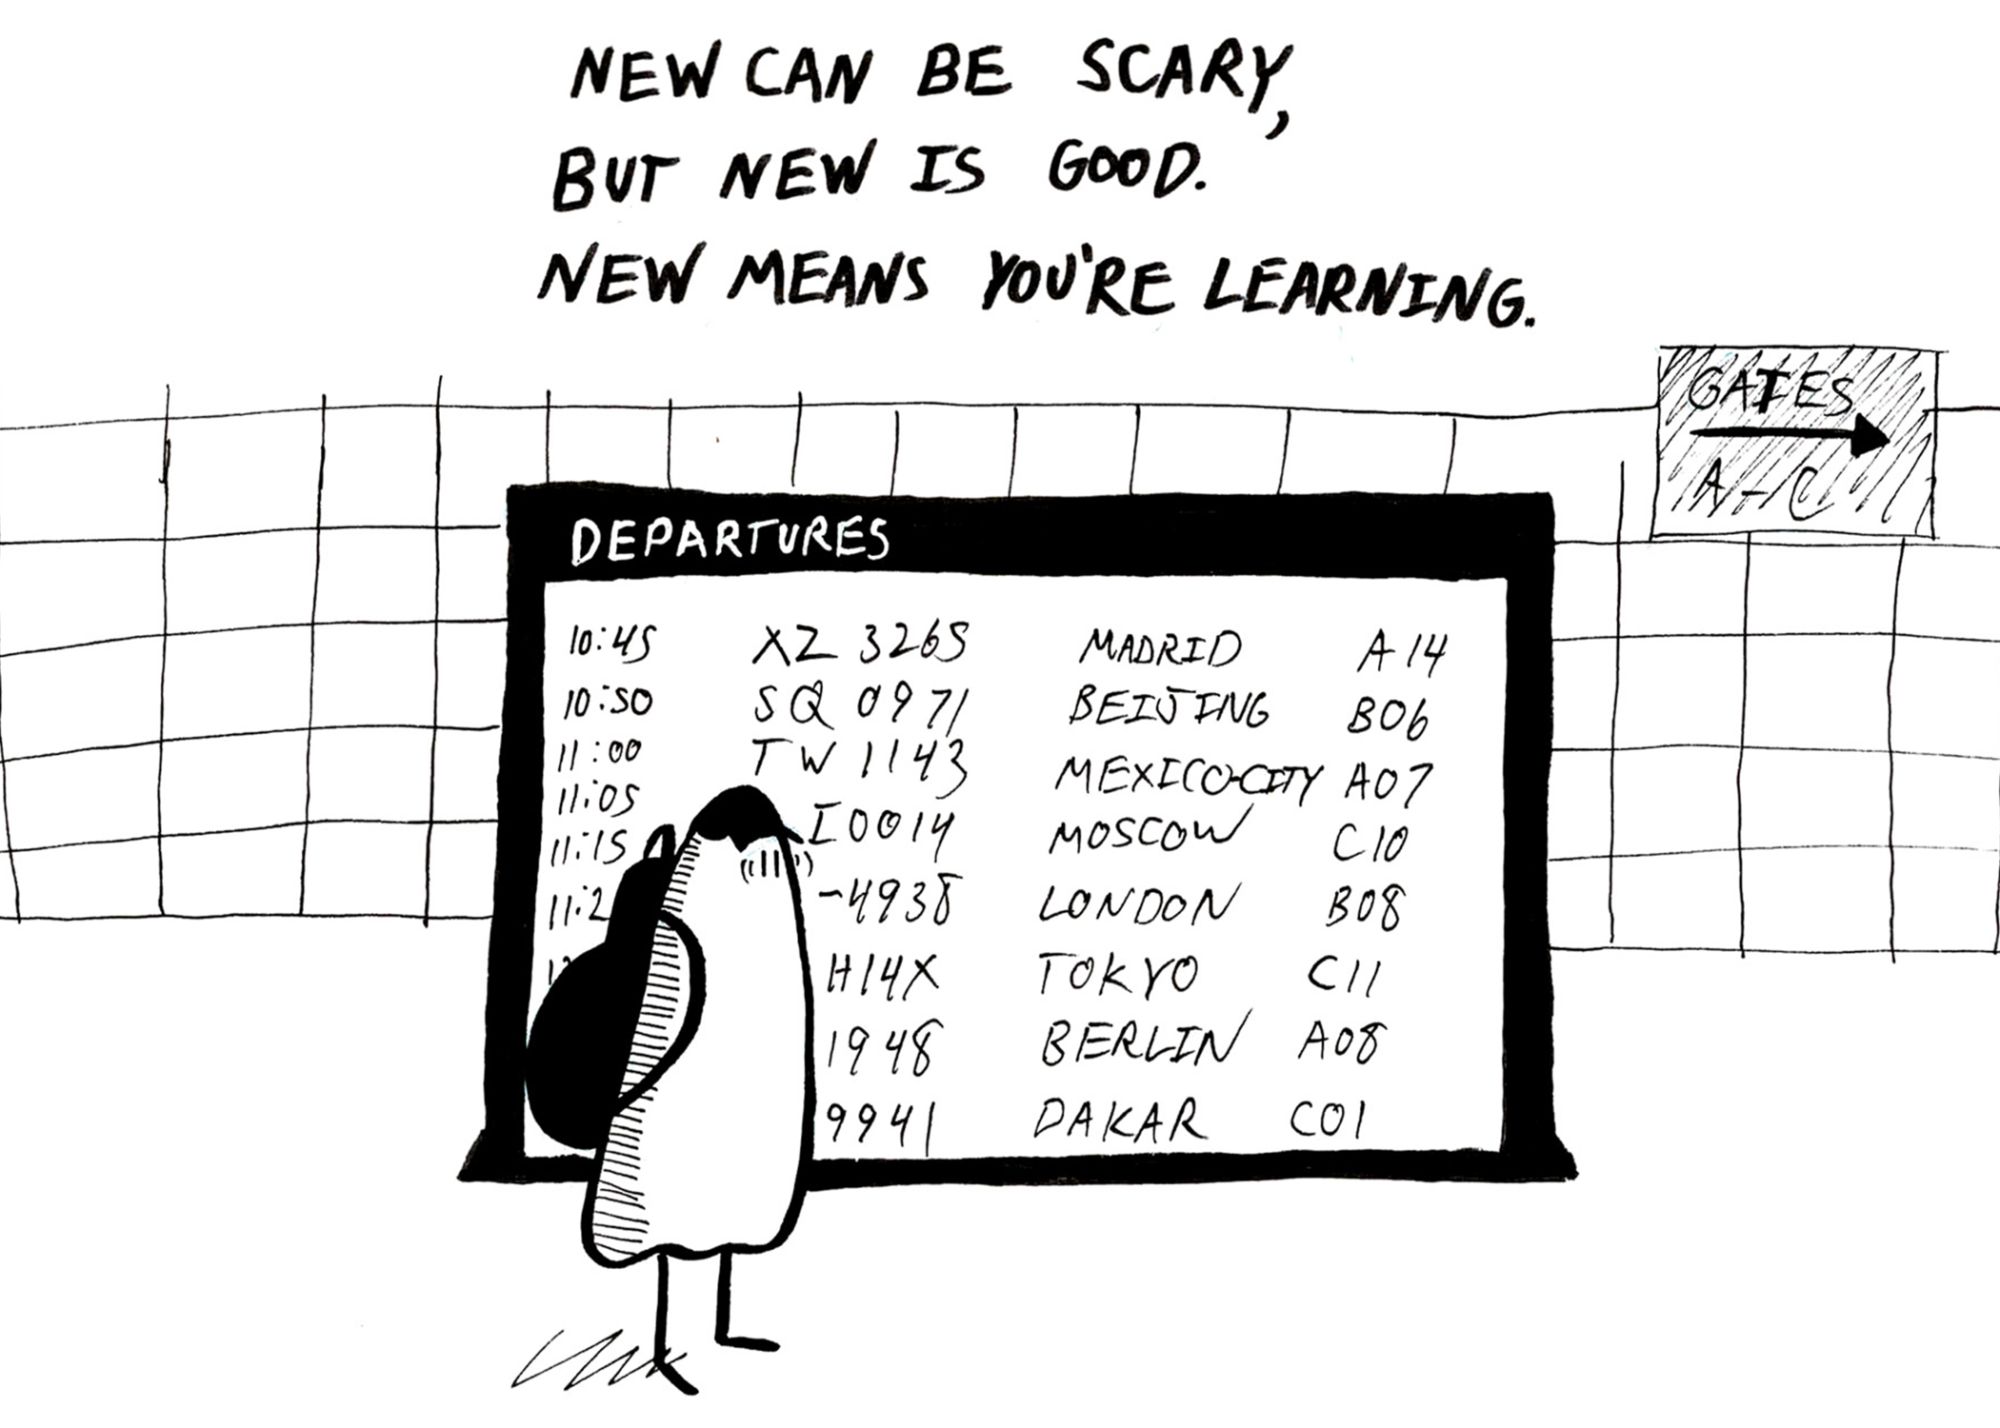 NEW CAN BE SCARY,
BUT NEW IS GOOD.
NEW MEANS YOU'RE LEARNING.
GATES
A-C
DEPARTURES
10:45 XZ 3265 MADRID A14
10:50 SQ 0971 BEIJING B06
11:00 TW 1143 MEXICO-CITY A07
11:05 I0014 MOSCOW C10
11:15 -4938 LONDON B08
11:2 H14X TOKYO C11
1948 BERLIN A08
9941 DAKAR C01